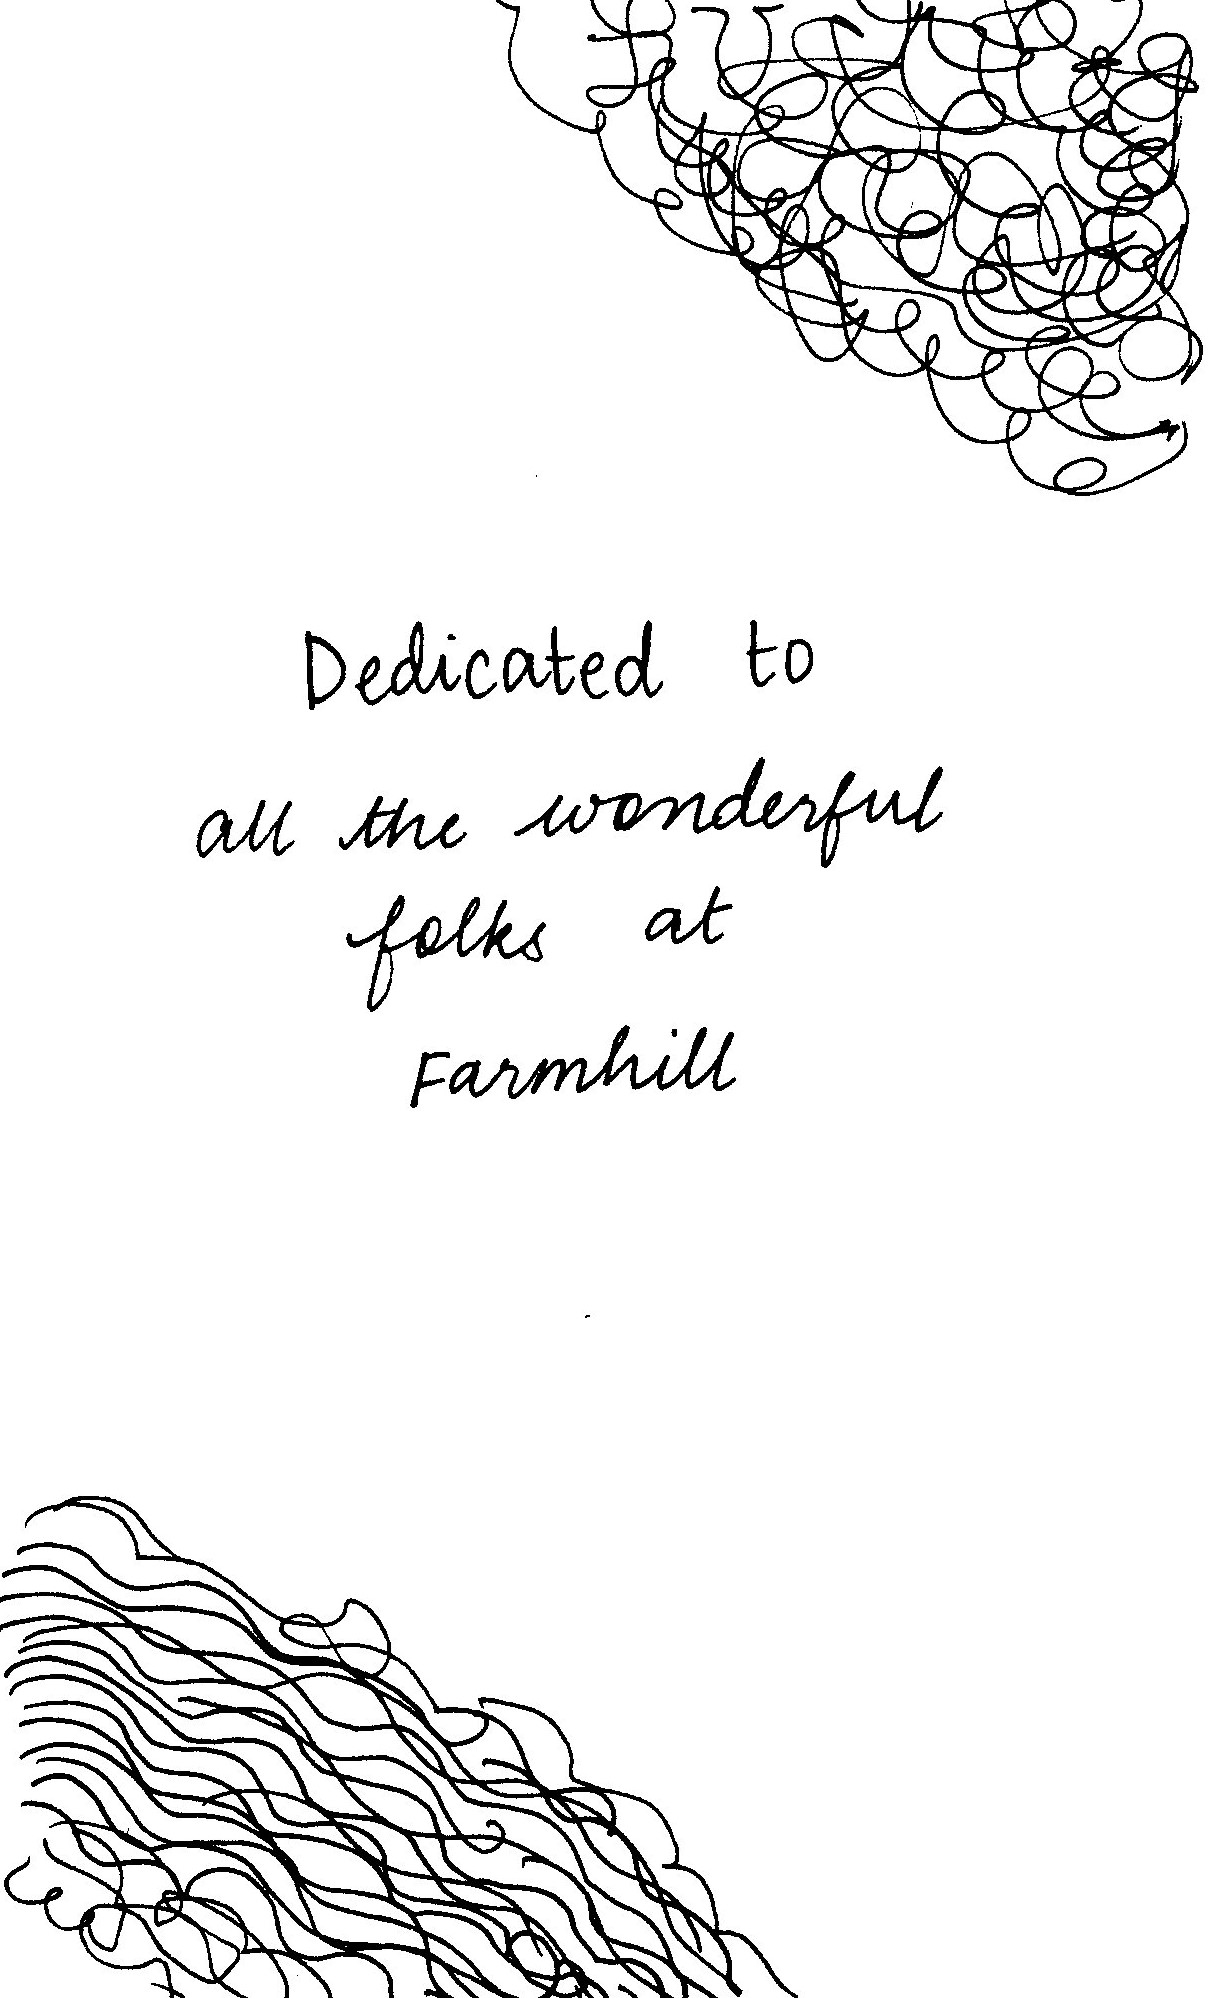 Dedicated to
all the wonderful
folks at
Farmhill